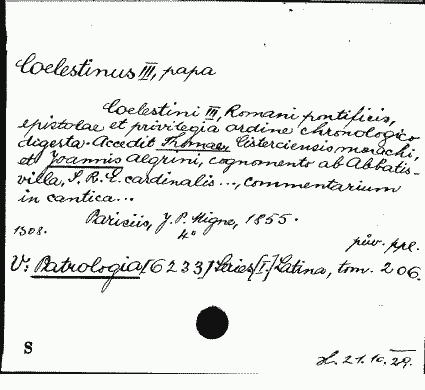 Coelestinus III, papa
Coelestini III, Romani pontificis,
epistolae et privilegia ordine chronologico
digesta. Accedit Thomae, Cisterciensis monachi,
et Joannis Algrini, cognomento ab Abbatis-
villa, S. R. E. cardinalis ..., commentarium
in cantica ...
Parisiis, J. P. Migne, 1855.
4°
1308.
pův. ppl.
V: Patrologia [6233] Series [I.] Latina, tom. 206.
S
21.10.29.